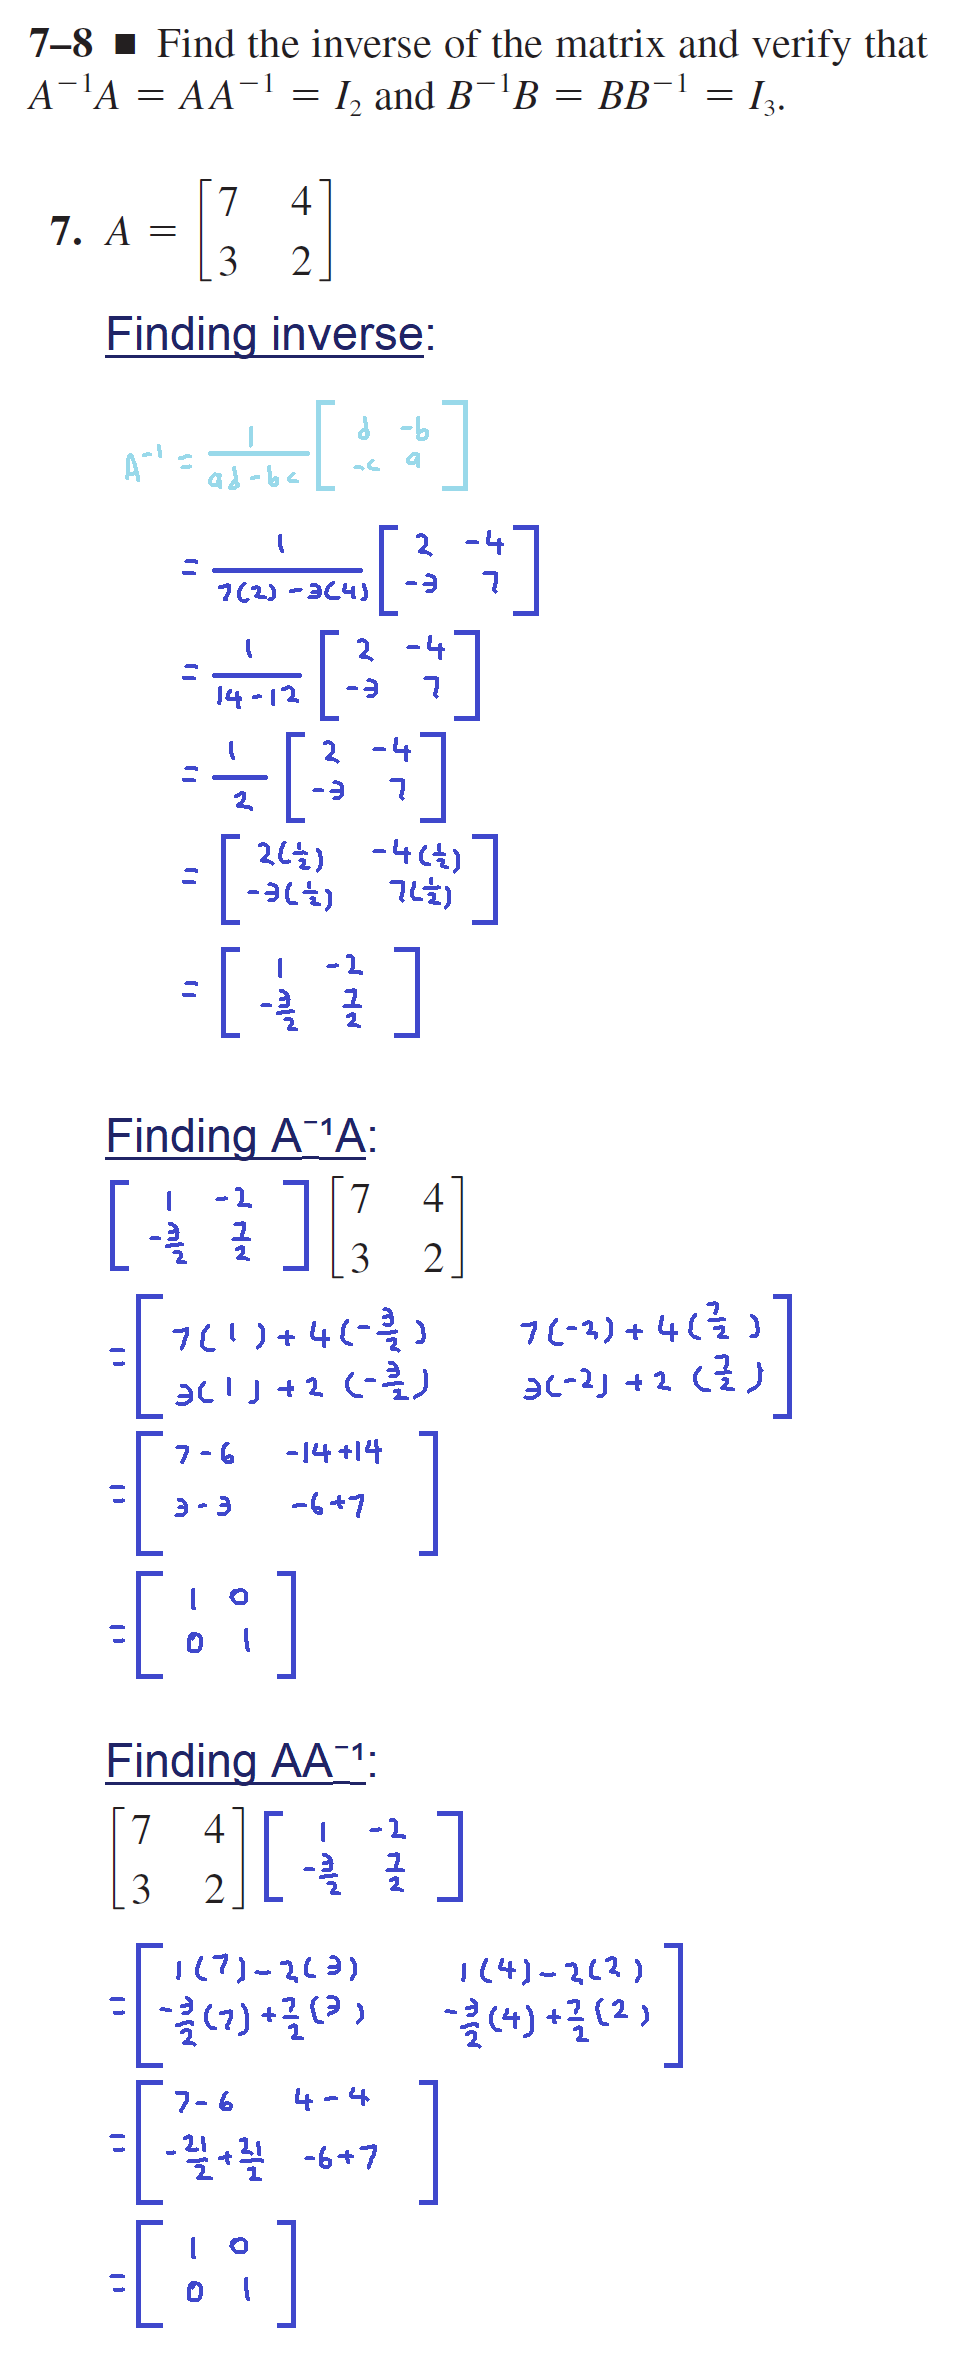 7–8 ■ Find the inverse of the matrix and verify that
A⁻¹A = AA⁻¹ = I₂ and B⁻¹B = BB⁻¹ = I₃.
7. A = [7 4
3 2]
Finding inverse:
A⁻¹ = 1/(ad-bc) [d -b
-c a]
= 1/(7(2) - 3(4)) [2 -4
-3 7]
= 1/(14-12) [2 -4
-3 7]
= 1/2 [2 -4
-3 7]
= [2(1/2) -4(1/2)
-3(1/2) 7(1/2)]
= [1 -2
-3/2 7/2]
Finding A⁻¹A:
[1 -2
-3/2 7/2] [7 4
3 2]
= [7(1) + 4(-3/2) 7(-2) + 4(7/2)
3(1) + 2(-3/2) 3(-2) + 2(7/2)]
= [7-6 -14+14
3-3 -6+7]
= [1 0
0 1]
Finding AA⁻¹:
[7 4
3 2] [1 -2
-3/2 7/2]
= [1(7) - 2(3) 1(4) - 2(2)
-3/2(7) + 7/2(3) -3/2(4) + 7/2(2)]
= [7-6 4-4
-21/2 + 21/2 -6+7]
= [1 0
0 1]